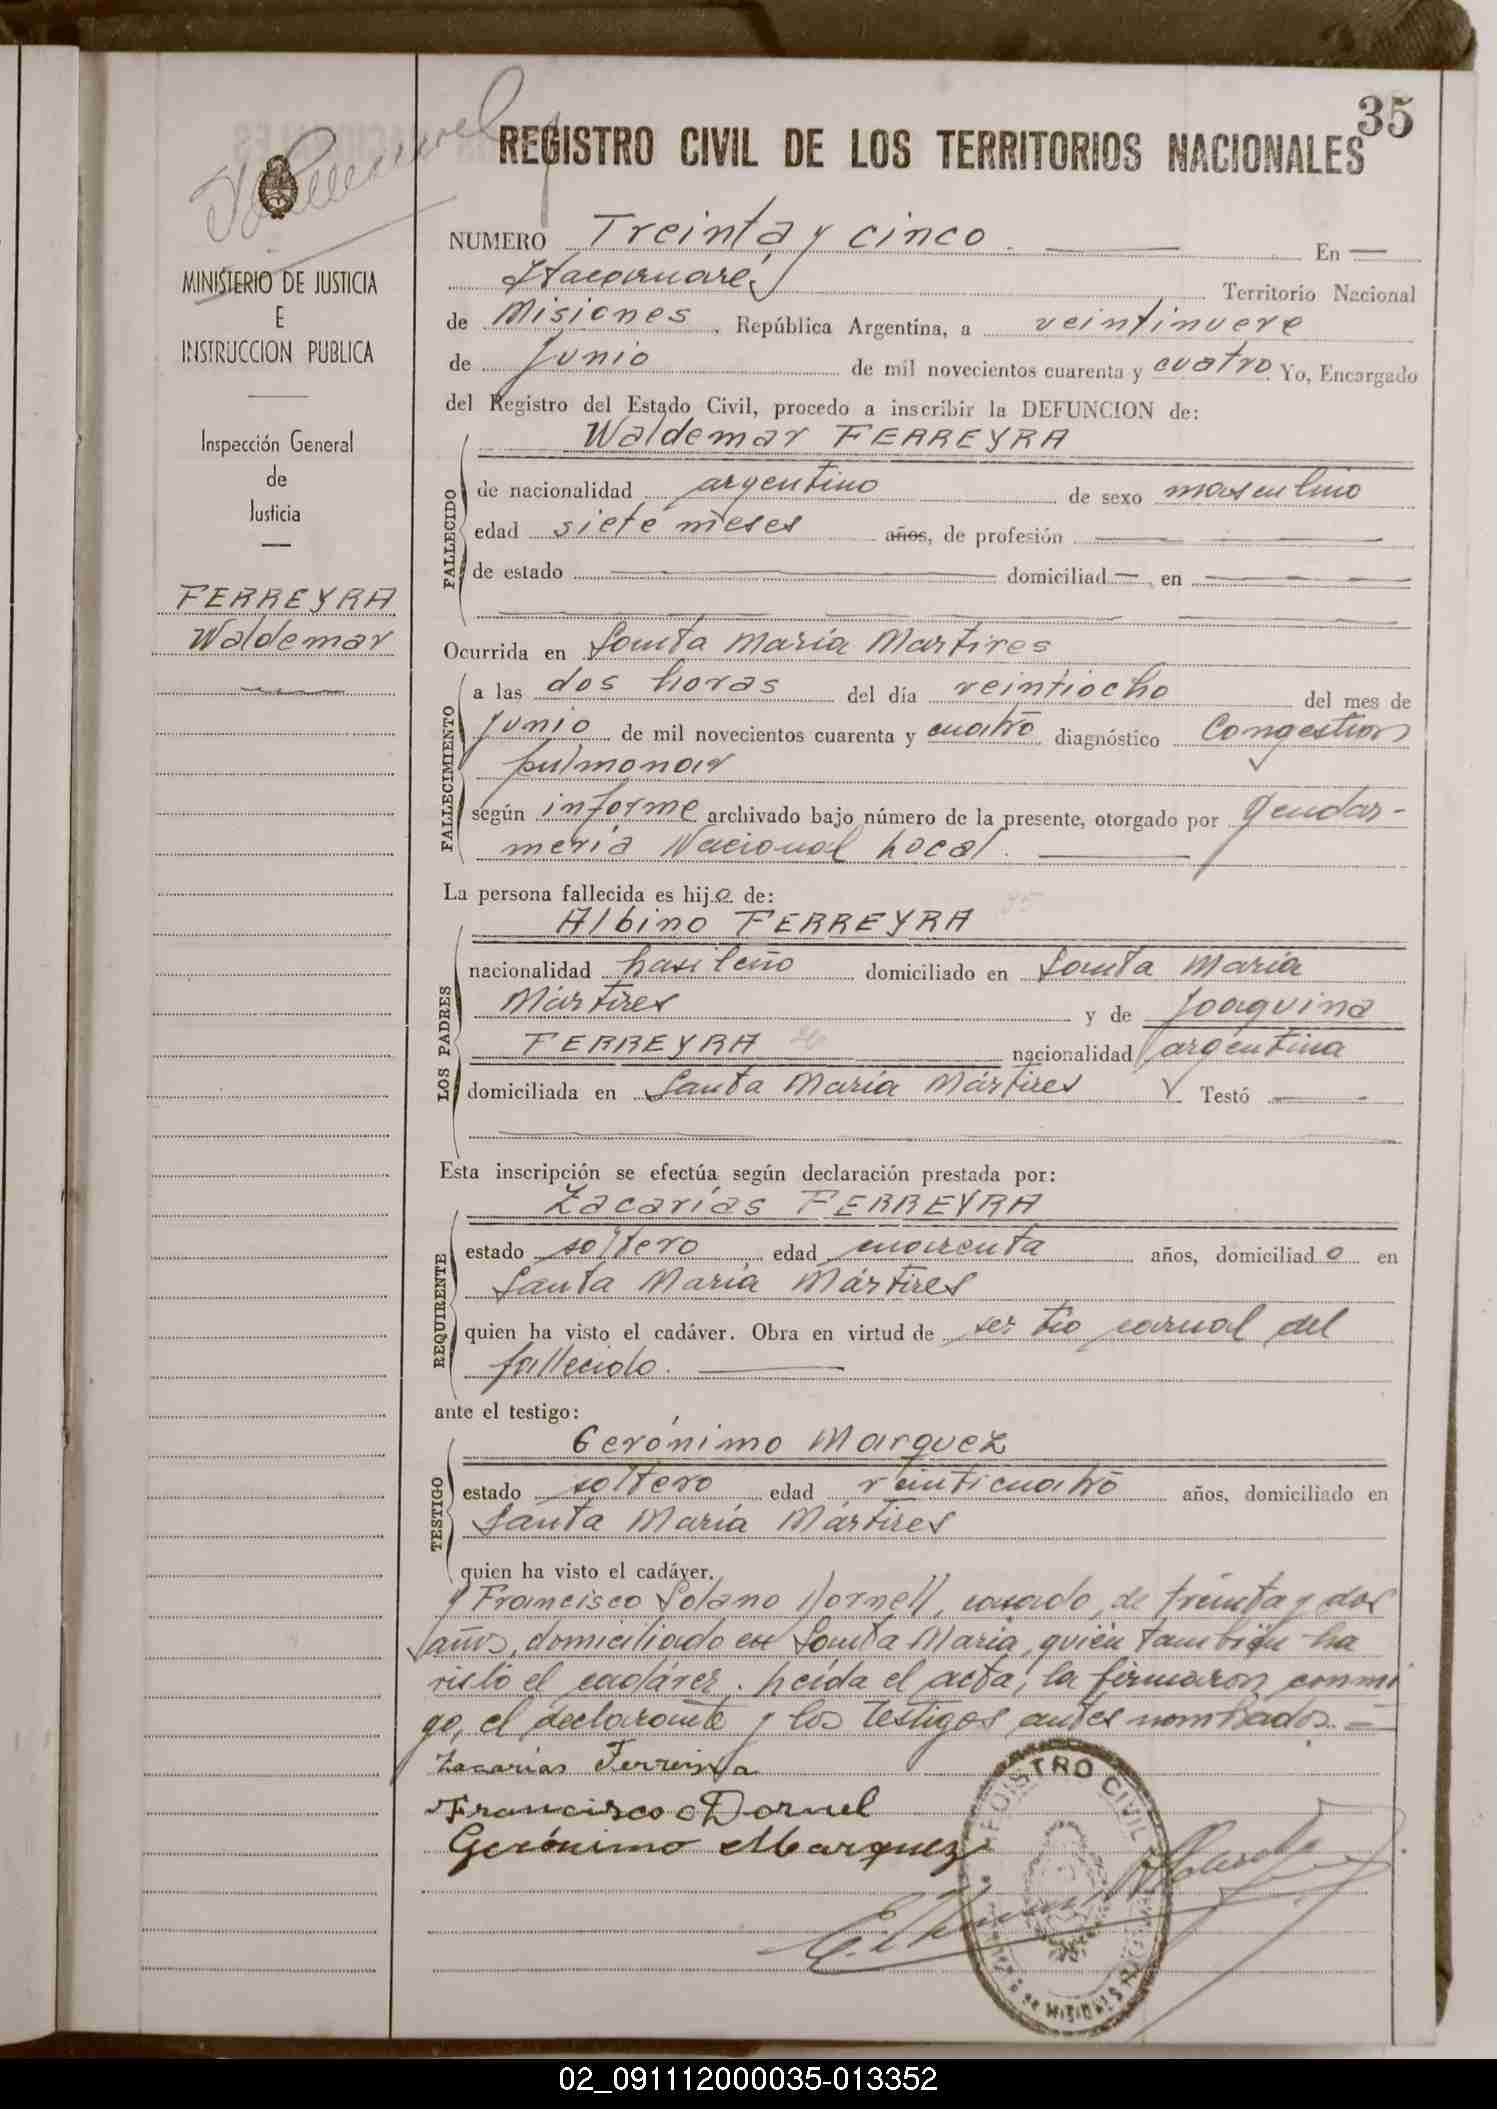 35
REGISTRO CIVIL DE LOS TERRITORIOS NACIONALES
MINISTERIO DE JUSTICIA
E
INSTRUCCION PUBLICA
Inspección General
de
Justicia
FERREYRA
Waldemar
NUMERO Treinta y cinco. En
Itacaruaré, Territorio Nacional
de Misiones, República Argentina, a veintinueve
de Junio de mil novecientos cuarenta y cuatro Yo, Encargado
del Registro del Estado Civil, procedo a inscribir la DEFUNCION de:
Waldemar FERREYRA
FALLECIDO
de nacionalidad argentino de sexo masculino
edad siete meses años, de profesión
de estado domiciliad en
Ocurrida en Santa María Martires
FALLECIMIENTO
a las dos horas del día veintiocho del mes de
junio de mil novecientos cuarenta y cuatro diagnóstico Congestion
pulmonar
según informe archivado bajo número de la presente, otorgado por gendar-
mería Nacional Local.
La persona fallecida es hijo de:
Albino FERREYRA
LOS PADRES
nacionalidad brasileño domiciliado en Santa María
Mártires y de Joaquina
FERREYRA nacionalidad argentina
domiciliada en Santa María Mártires Testó
Esta inscripción se efectúa según declaración prestada por:
Zacarías FERREYRA
REQUIRENTE
estado soltero edad cuarenta años, domiciliado en
Santa María Mártires
quien ha visto el cadáver. Obra en virtud de ser tío carnal del
fallecido.
ante el testigo:
Gerónimo Marquez
TESTIGO
estado soltero edad veinticuatro años, domiciliado en
Santa María Mártires
quien ha visto el cadáver.
y Francisco Solano Dornell, casado, de treinta y dos
años, domiciliado en Santa María, quien también ha
visto el cadáver. Leída el acta, la firmaron conmi
go, el declarante y los testigos antes nombrados.=
Zacarías Ferreira
Francisco Dornel
Gerónimo Marquez
REGISTRO CIVIL
MISIONES
02_091112000035-013352